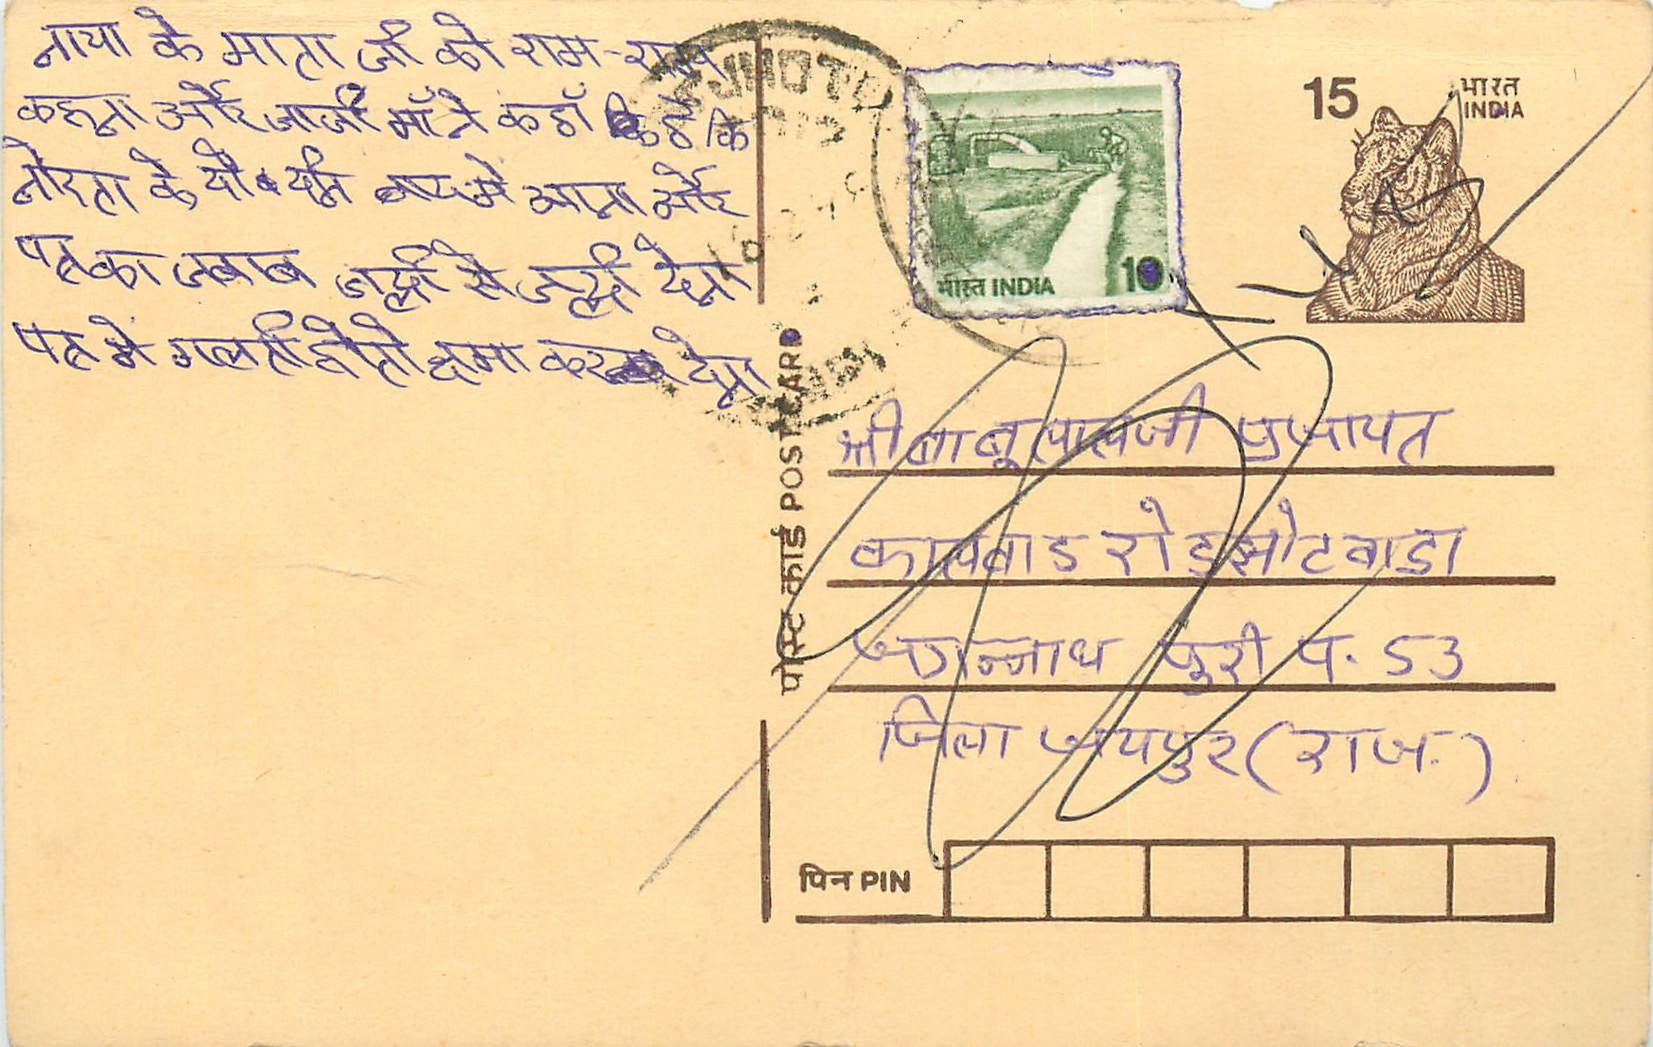 नाया के माता जी को राम-राम
कहना और जाजी माँ ने कहाँ कि
के यो बाप मे आना और
पत्र का जबाब जल्दी से जल्दी देना
पत्र मे गलती होतो क्षमा कर देना
JHOTW
15 भारत
INDIA
भारत INDIA 10
पोस्ट कार्ड POST CARD
श्री बाबूलालजी प्रजापत
कालवाड रोड झोटवाडा
जगन्नाथ पुरी प. 53
जिला जयपुर (राज.)
पिन PIN